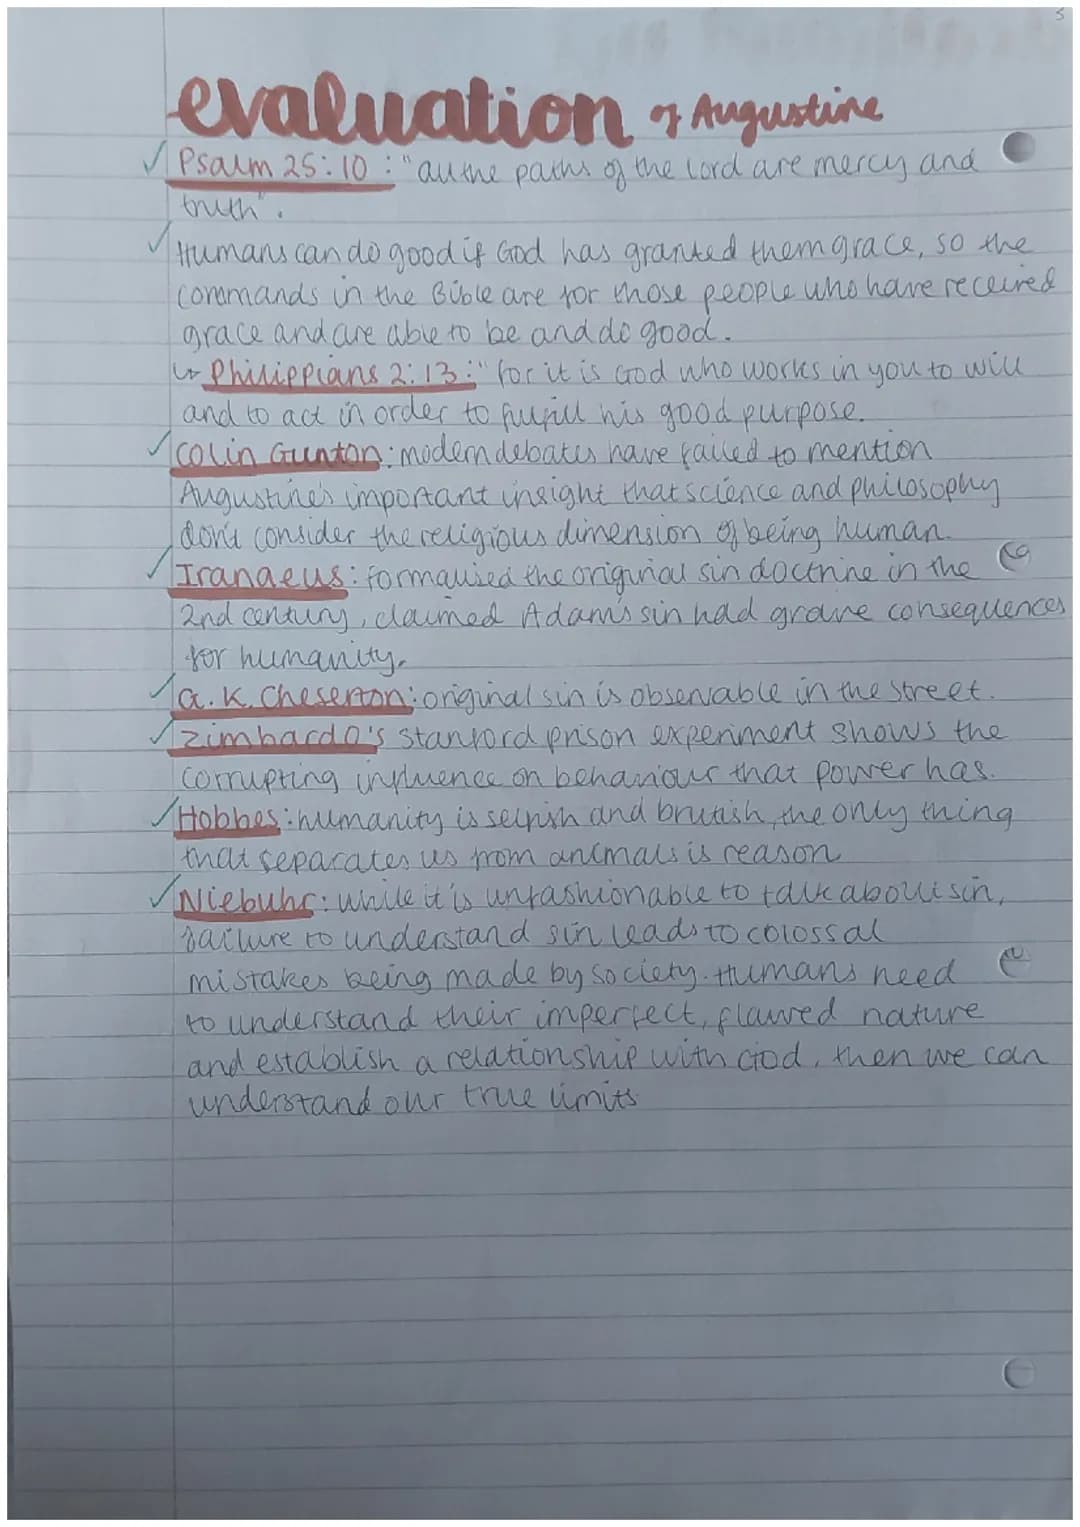 3
evaluation of Augustine
Psalm 25:10 : "all the paths of the lord are mercy and
truth".
Humans can do good if God has granted them grace, so the
commands in the Bible are for those people who have received
grace and are able to be and do good.
↳ Philippians 2:13 : "for it is God who works in you to will
and to act in order to fulfill his good purpose.
Colin Gunton: modern debates have failed to mention
Augustine's important insight that science and philosophy
don't consider the religious dimension of being human.
Iranaeus: formalised the original sin doctrine in the
2nd century, claimed Adam's sin had grave consequences
for humanity.
G.K. Cheserton: original sin is observable in the street.
Zimbardo's stanford prison experiment shows the
corrupting influence on behaviour that power has.
Hobbes: humanity is selfish and brutish, the only thing
that separates us from animals is reason
Niebuhr: while it is unfashionable to talk about sin,
failure to understand sin leads to colossal
mistakes being made by society. Humans need
to understand their imperfect, flawed nature
and establish a relationship with God, then we can
understand our true limits